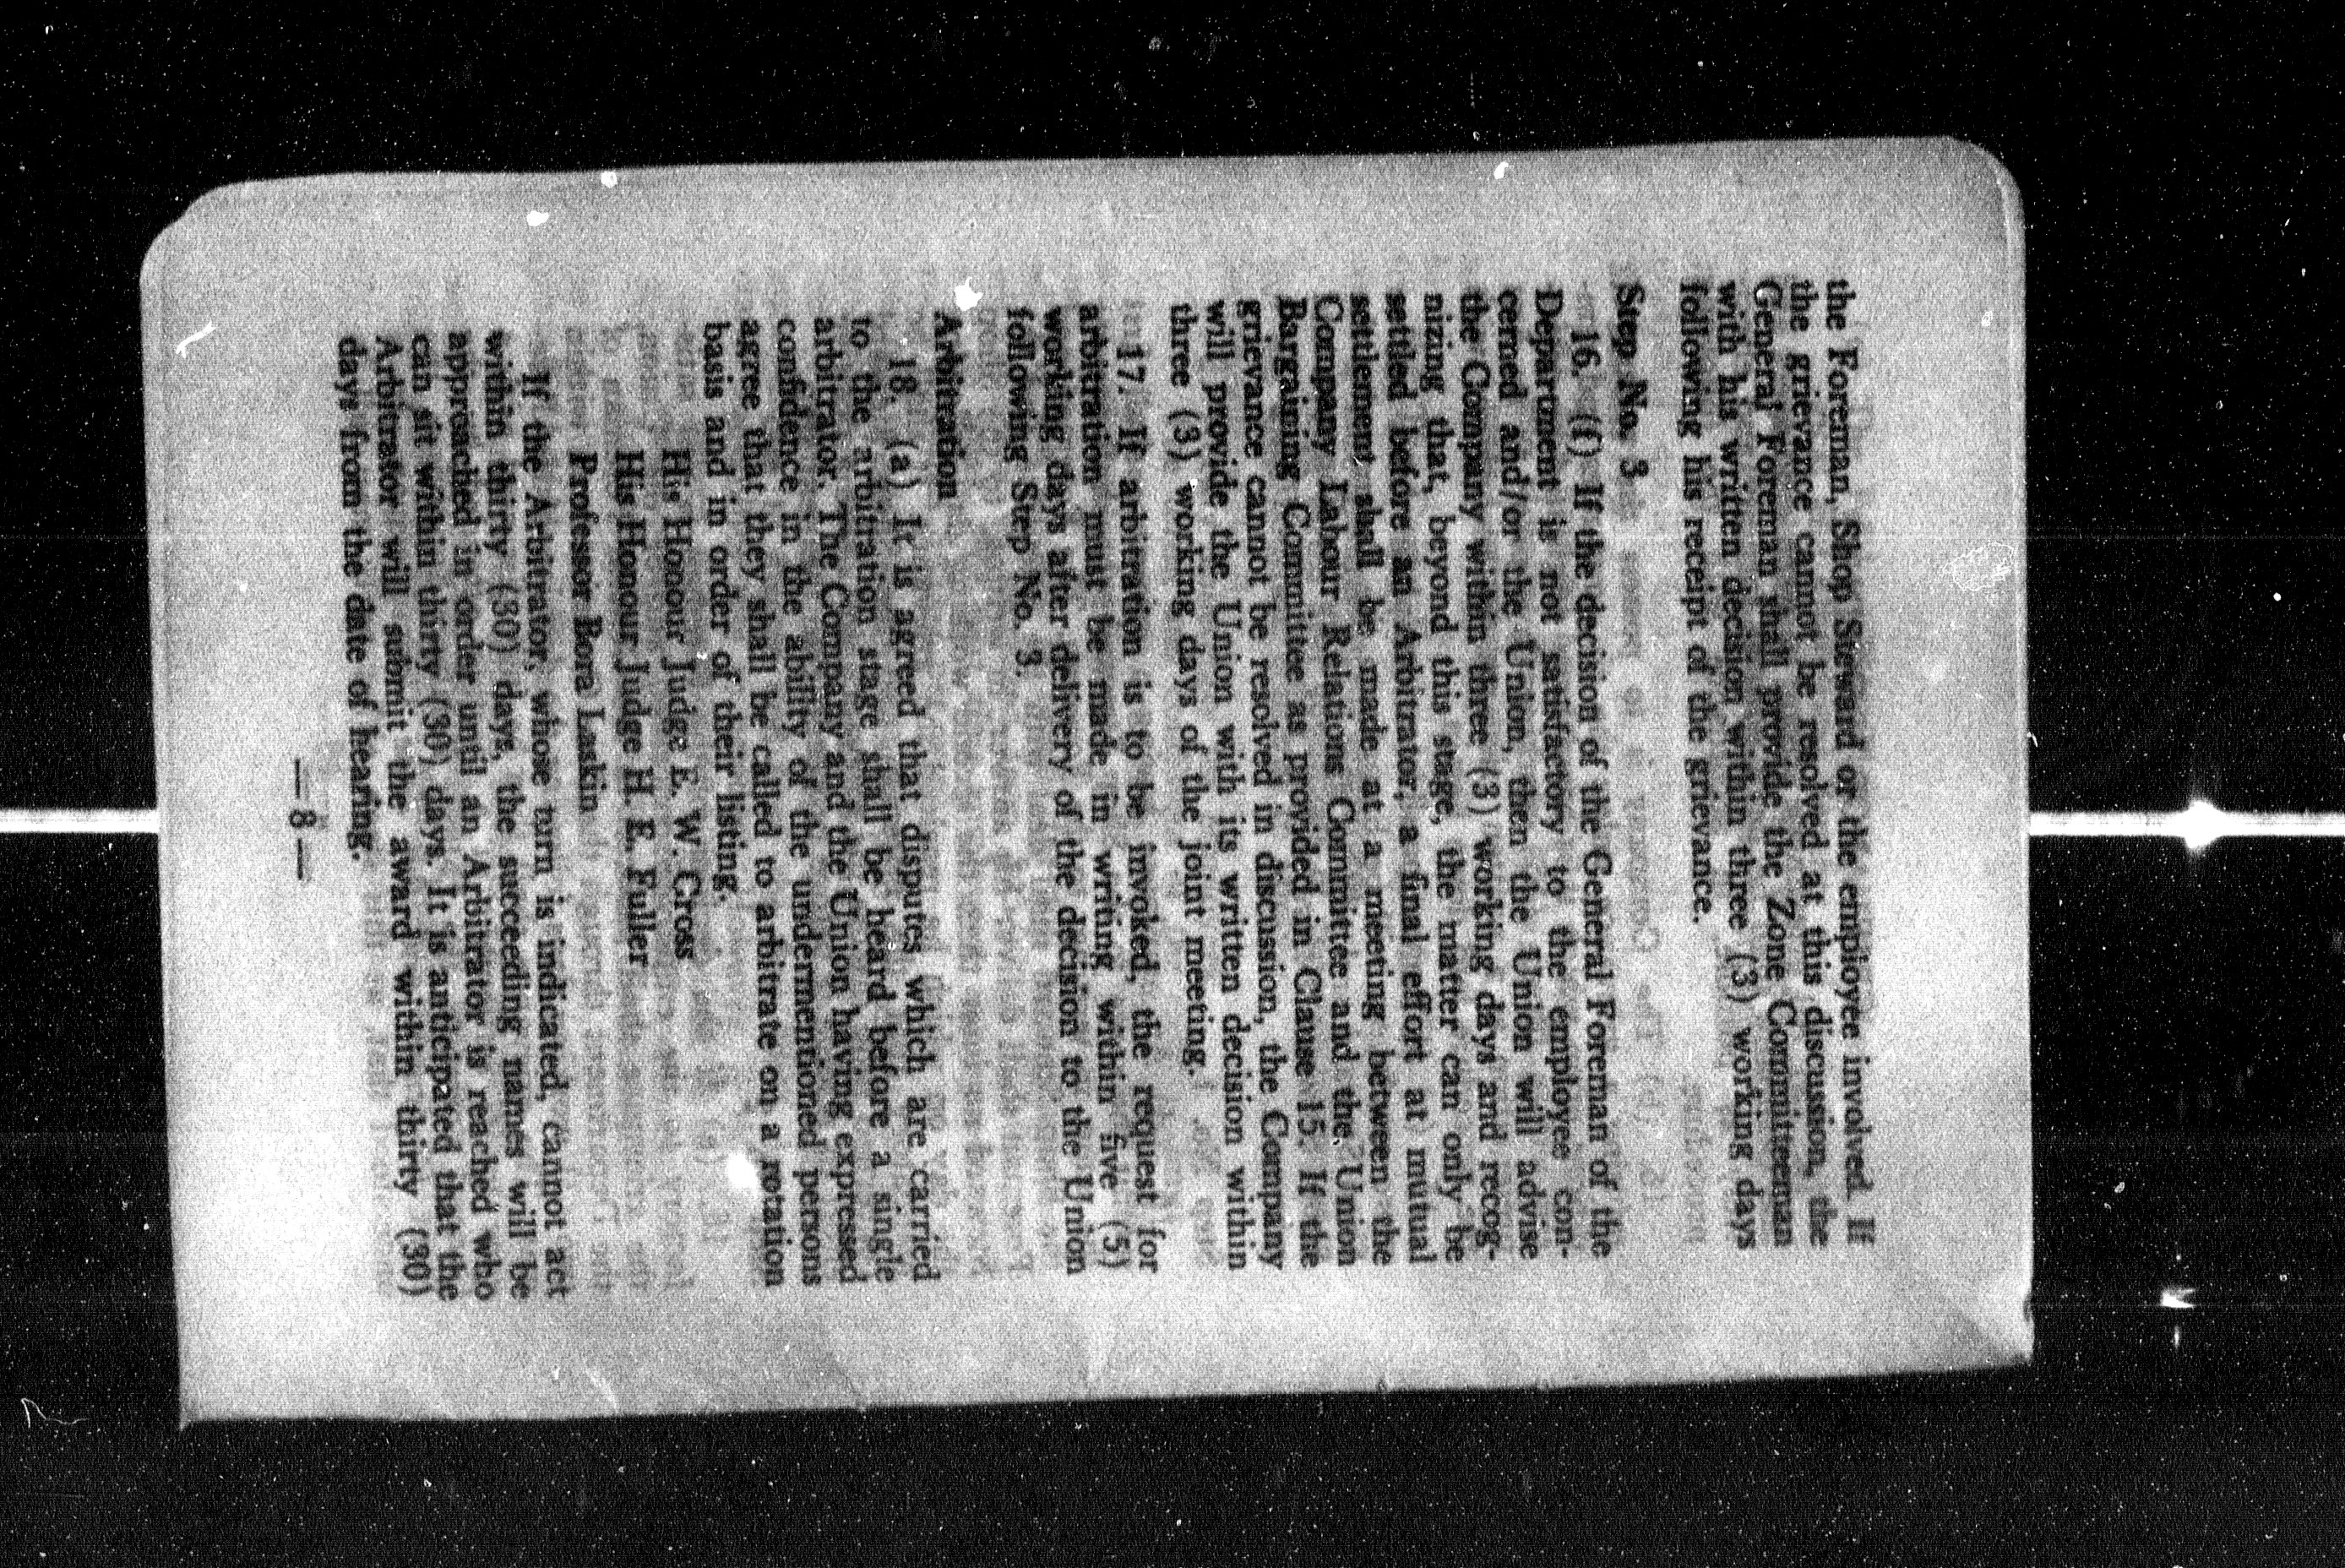 the Foreman, Shop Steward or the employee involved. If
the grievance cannot be resolved at this discussion, the
General Foreman shall provide the Zone Committeeman
with his written decision within three (3) working days
following his receipt of the grievance.
Step No. 3
16. (f) If the decision of the General Foreman of the
Department is not satisfactory to the employee con-
cerned and/or the Union, then the Union will advise
the Company within three (3) working days and recog-
nizing that, beyond this stage, the matter can only be
settled before an Arbitrator, a final effort at mutual
settlement shall be made at a meeting between the
Company Labour Relations Committee and the Union
Bargaining Committee as provided in Clause 15. If the
grievance cannot be resolved in discussion, the Company
will provide the Union with its written decision within
three (3) working days of the joint meeting.
17. If arbitration is to be invoked, the request for
arbitration must be made in writing within five (5)
working days after delivery of the decision to the Union
following Step No. 3.
Arbitration
18. (a) It is agreed that disputes which are carried
to the arbitration stage shall be heard before a single
arbitrator. The Company and the Union having expressed
confidence in the ability of the undermentioned persons
agree that they shall be called to arbitrate on a rotation
basis and in order of their listing.
His Honour Judge E. W. Cross
His Honour Judge H. E. Fuller
Professor Bora Laskin
If the Arbitrator, whose turn is indicated, cannot act
within thirty (30) days, the succeeding names will be
approached in order until an Arbitrator is reached who
can sit within thirty (30) days. It is anticipated that the
Arbitrator will submit the award within thirty (30)
days from the date of hearing.
— 8 —